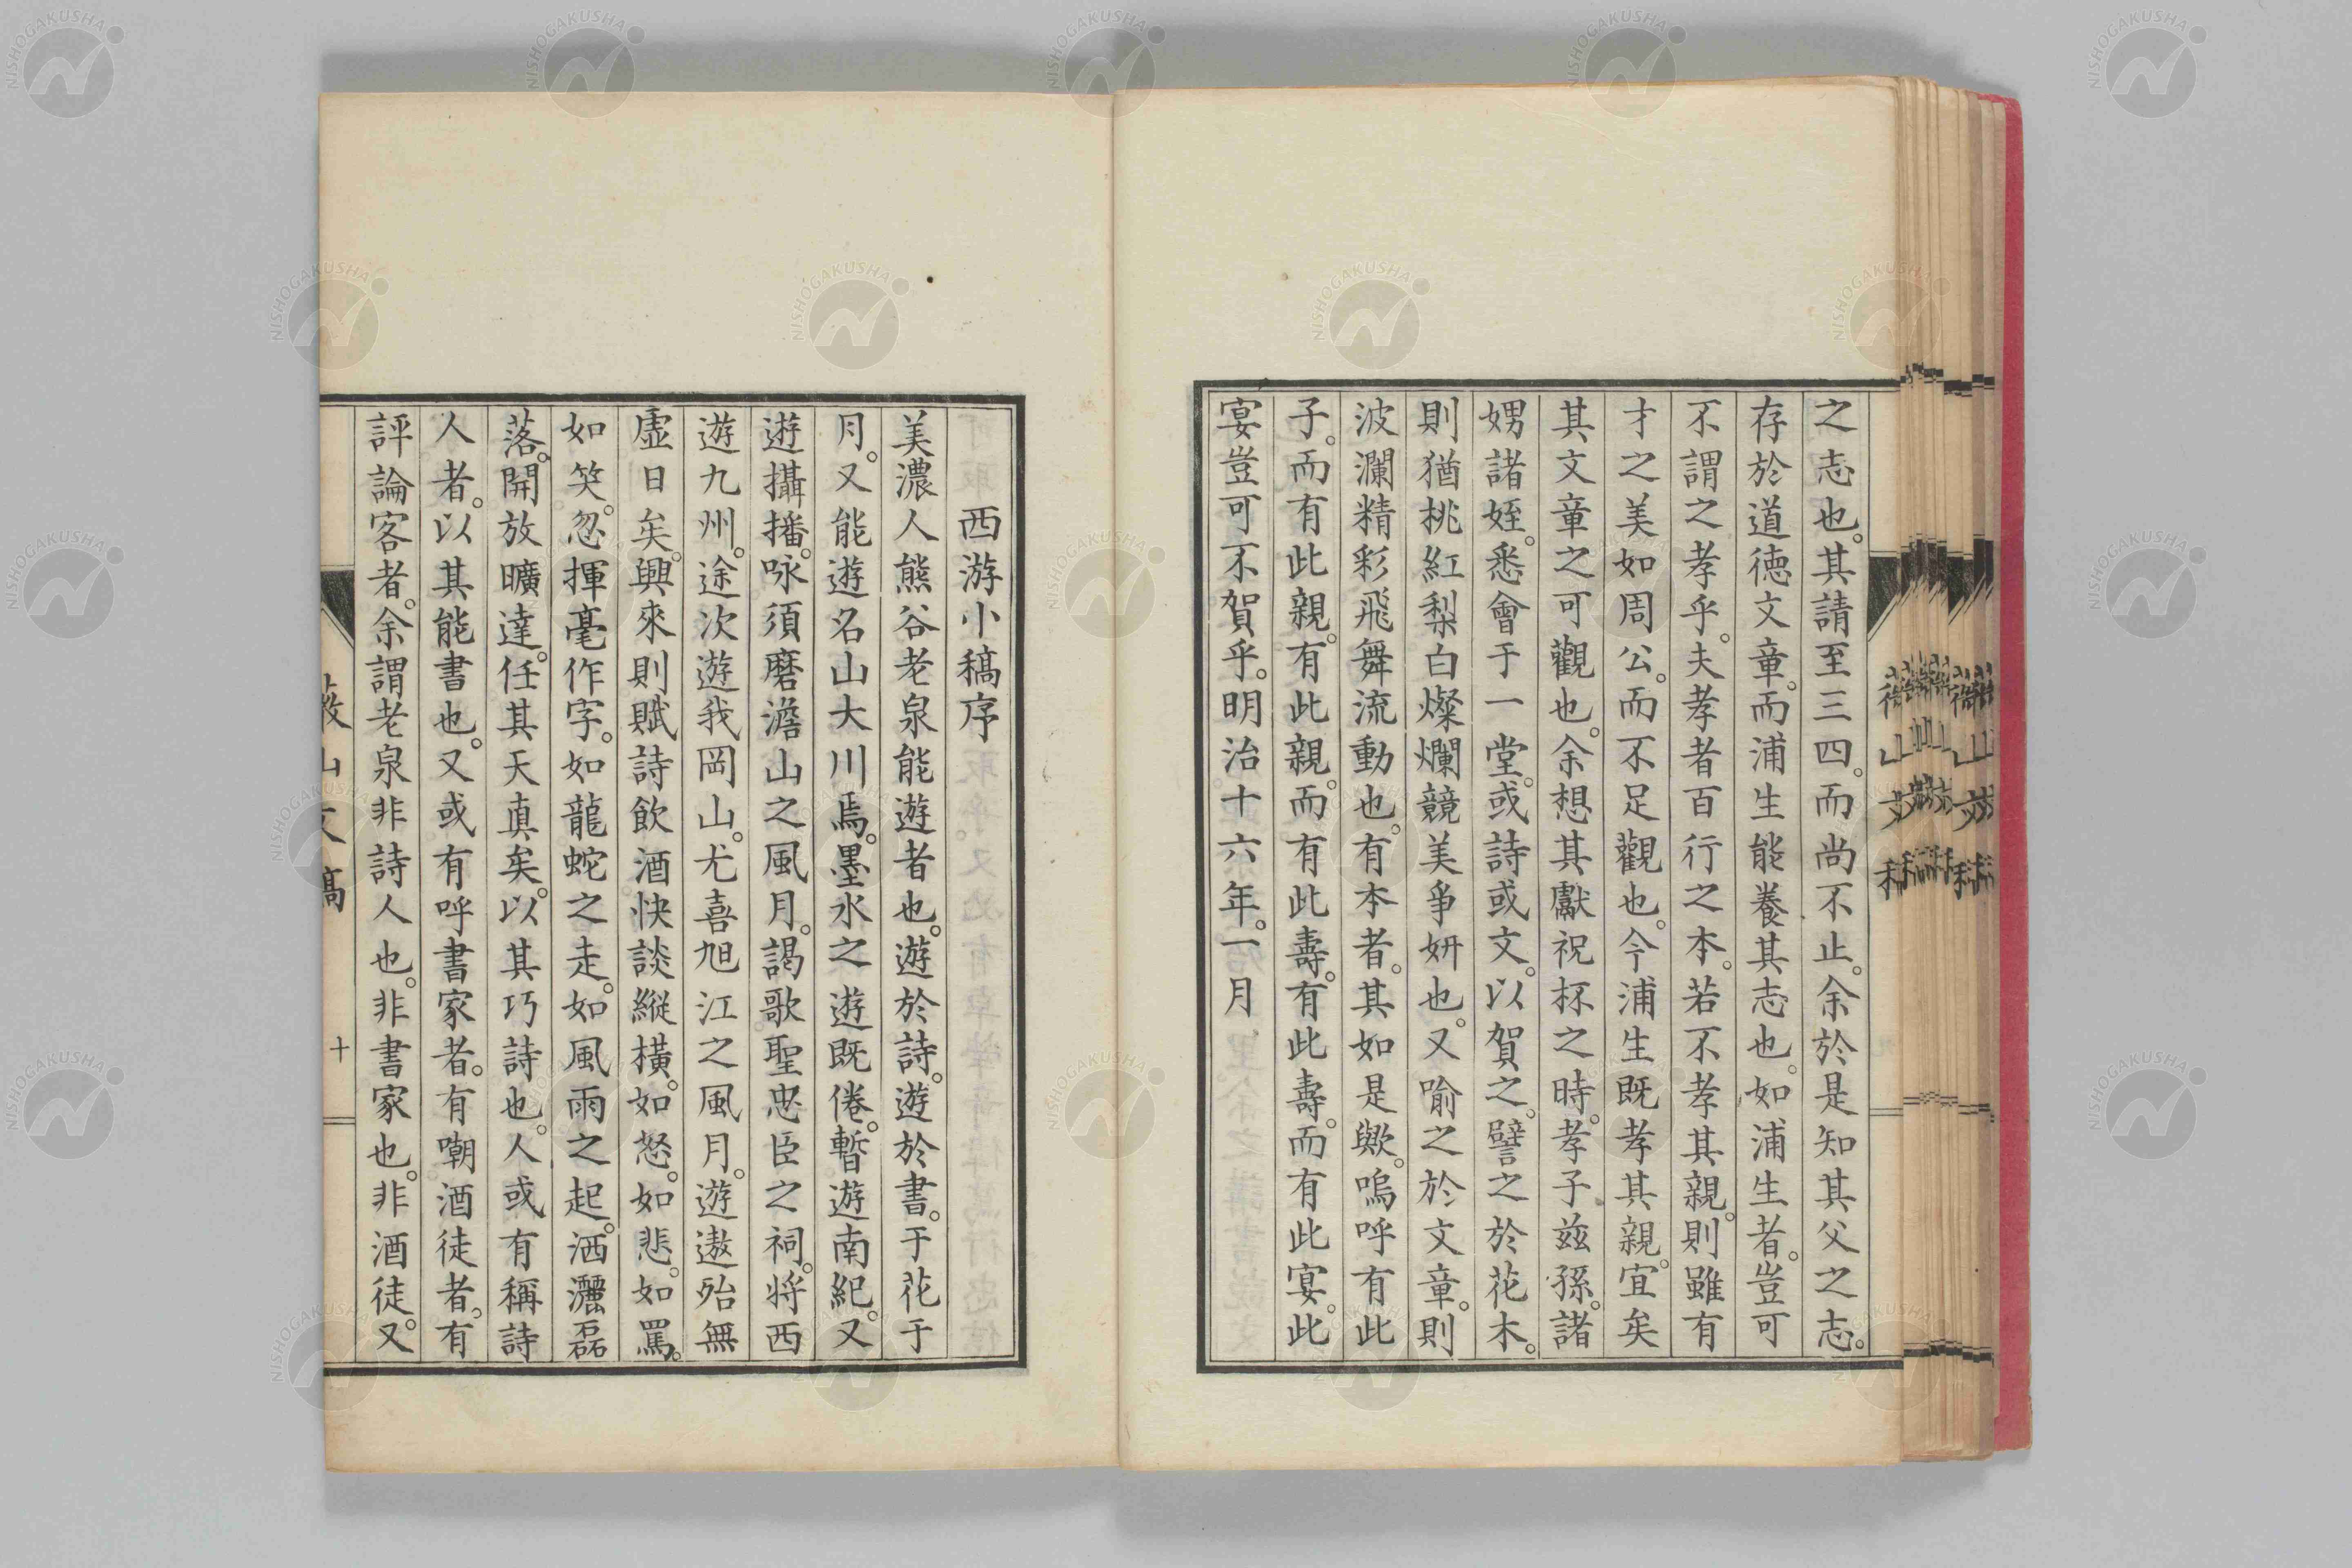 之志也。其請至三四。而尚不止。余於是知其父之志。
存於道徳文章。而浦生能養其志也。如浦生者。豈可
不謂之孝乎。夫孝者百行之本。若不孝其親。則雖有
才之美如周公。而不足觀也。今浦生既孝其親。宜矣
其文章之可觀也。余想其獻祝杯之時。孝子玆孫。諸
娚諸姪。悉會于一堂。或詩或文。以賀之。譬之於花木。
則猶桃紅梨白燦爛競美爭妍也。又喻之於文章。則
波瀾精彩飛舞流動也。有本者。其如是歟。嗚呼有此
子。而有此親。有此親。而有此壽。有此壽。而有此宴。此
宴豈可不賀乎。明治十六年。一月
西游小稿序
美濃人熊谷老泉能遊者也。遊於詩。遊於書。于花于
月。又能遊名山大川焉。墨水之遊既倦。暫遊南紀。又
遊攝播。咏須磨澹山之風月。謁歌聖忠臣之祠。將西
遊九州。途次遊我岡山。尤喜旭江之風月。遊遨殆無
虛日矣。興來則賦詩飲酒快談縱橫。如怒。如悲。如罵。
如笑。忽揮毫作字。如龍蛇之走。如風雨之起。洒灑磊
落。開放曠達。任其天真矣。以其巧詩也。人或有稱詩
人者。以其能書也。又或有呼書家者。有嘲酒徒者。有
評論客者。余謂老泉非詩人也。非書家也。非酒徒。又
薇山文稿 十